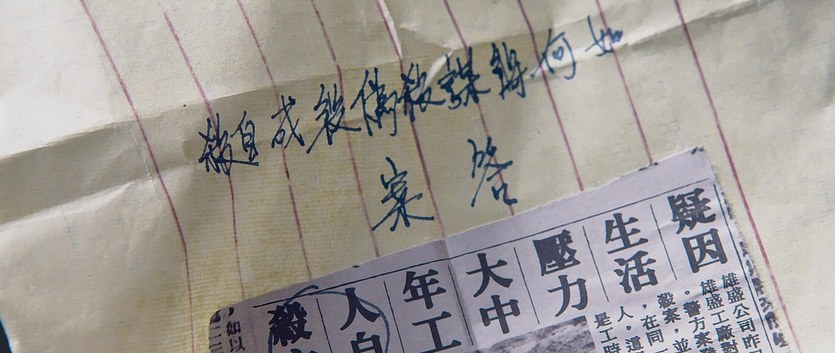 如何將謀殺偽裝成自殺
答案
疑因
生活
壓力
大中
年工
人自
殺
雄盛公司昨
雄盛工廠對
。警方案
殺案，並
，在同一
人。這
是工時